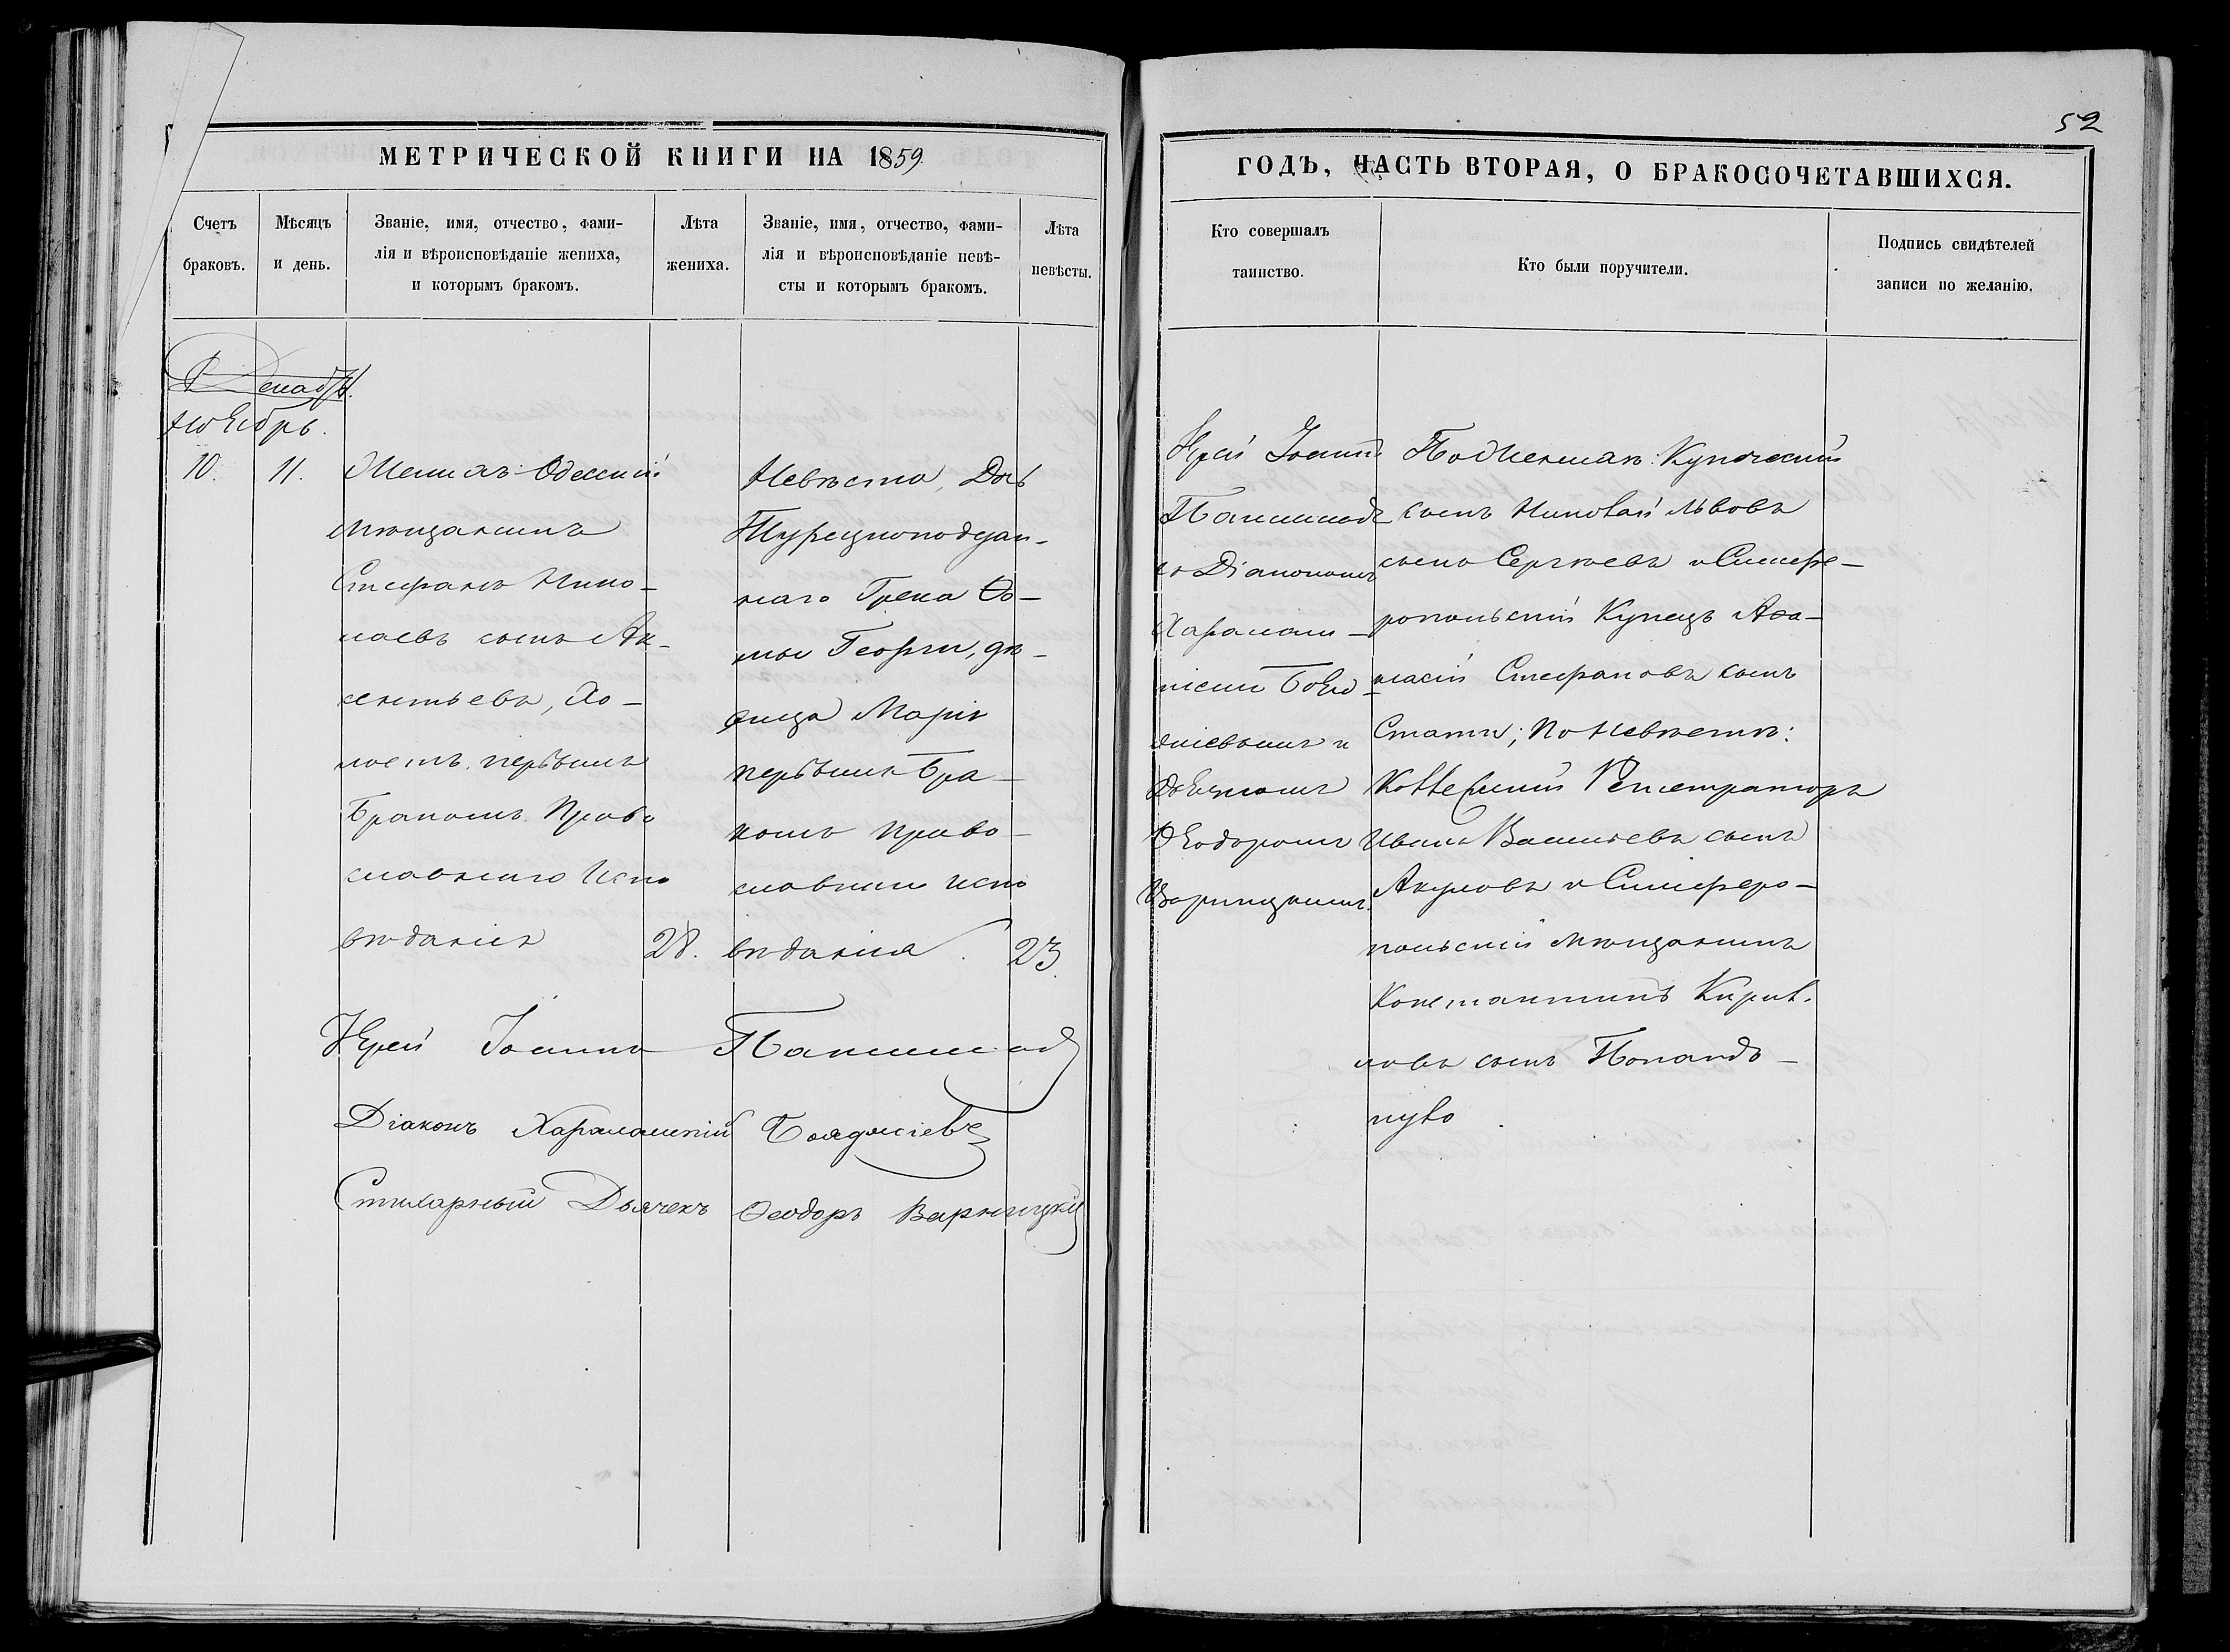 52
МЕТРИЧЕСКОЙ КНИГИ НА 1859
ГОДЪ, ЧАСТЬ ВТОРАЯ, О БРАКОСОЧЕТАВШИХСЯ.
Счетъ
браковъ.
Мѣсяцъ
и день.
Званіе, имя, отчество, фами-
лія и вѣроисповѣданіе жениха,
и которымъ бракомъ.
Лѣта
жениха.
Званіе, имя, отчество, фами-
лія и вѣроисповѣданіе невѣ-
сты и которымъ бракомъ.
Лѣта
невѣсты.
Кто совершалъ
таинство.
Кто были поручители.
Подпись свидѣтелей
записи по желанію.
Ноябрь.
10.
11.
Женихъ Одесскій
мѣщанинъ
Стефанъ Нико-
лаевъ сынъ Ак-
сентьевъ, Хо-
лостъ первымъ
Бракомъ Право
славнаго Испо
вѣданія
28.
Невѣста, Дочь
Турецкоподдан-
наго Грека Ѳо-
мы Георги, дѣ-
вица Марія
первымъ Бра-
комъ Право-
славнаго испо
вѣданія.
23.
Іерей Іоаннъ
съ Діакономъ
Харалам-
піемъ Бояд-
жіевымъ и
Дьячкомъ
Ѳеодоромъ
Варницкимъ.
По Женихѣ: Купеческій
сынъ Николай Львовъ
сынъ Сергѣевъ и Симфе-
ропольскій Купецъ Аѳа-
насій Стефановъ сынъ
Стати; По Невѣстѣ:
Коллежскій Регистраторъ
Иванъ Васильевъ сынъ
Акуловъ и Симферо-
польскій мѣщанинъ
Константинъ Кирил-
ловъ сынъ Попандо-
пуло
Іерей Іоаннъ
Діаконъ Харалампій Бояджіевъ
Стихарный Дьячекъ Ѳеодоръ Варницкій